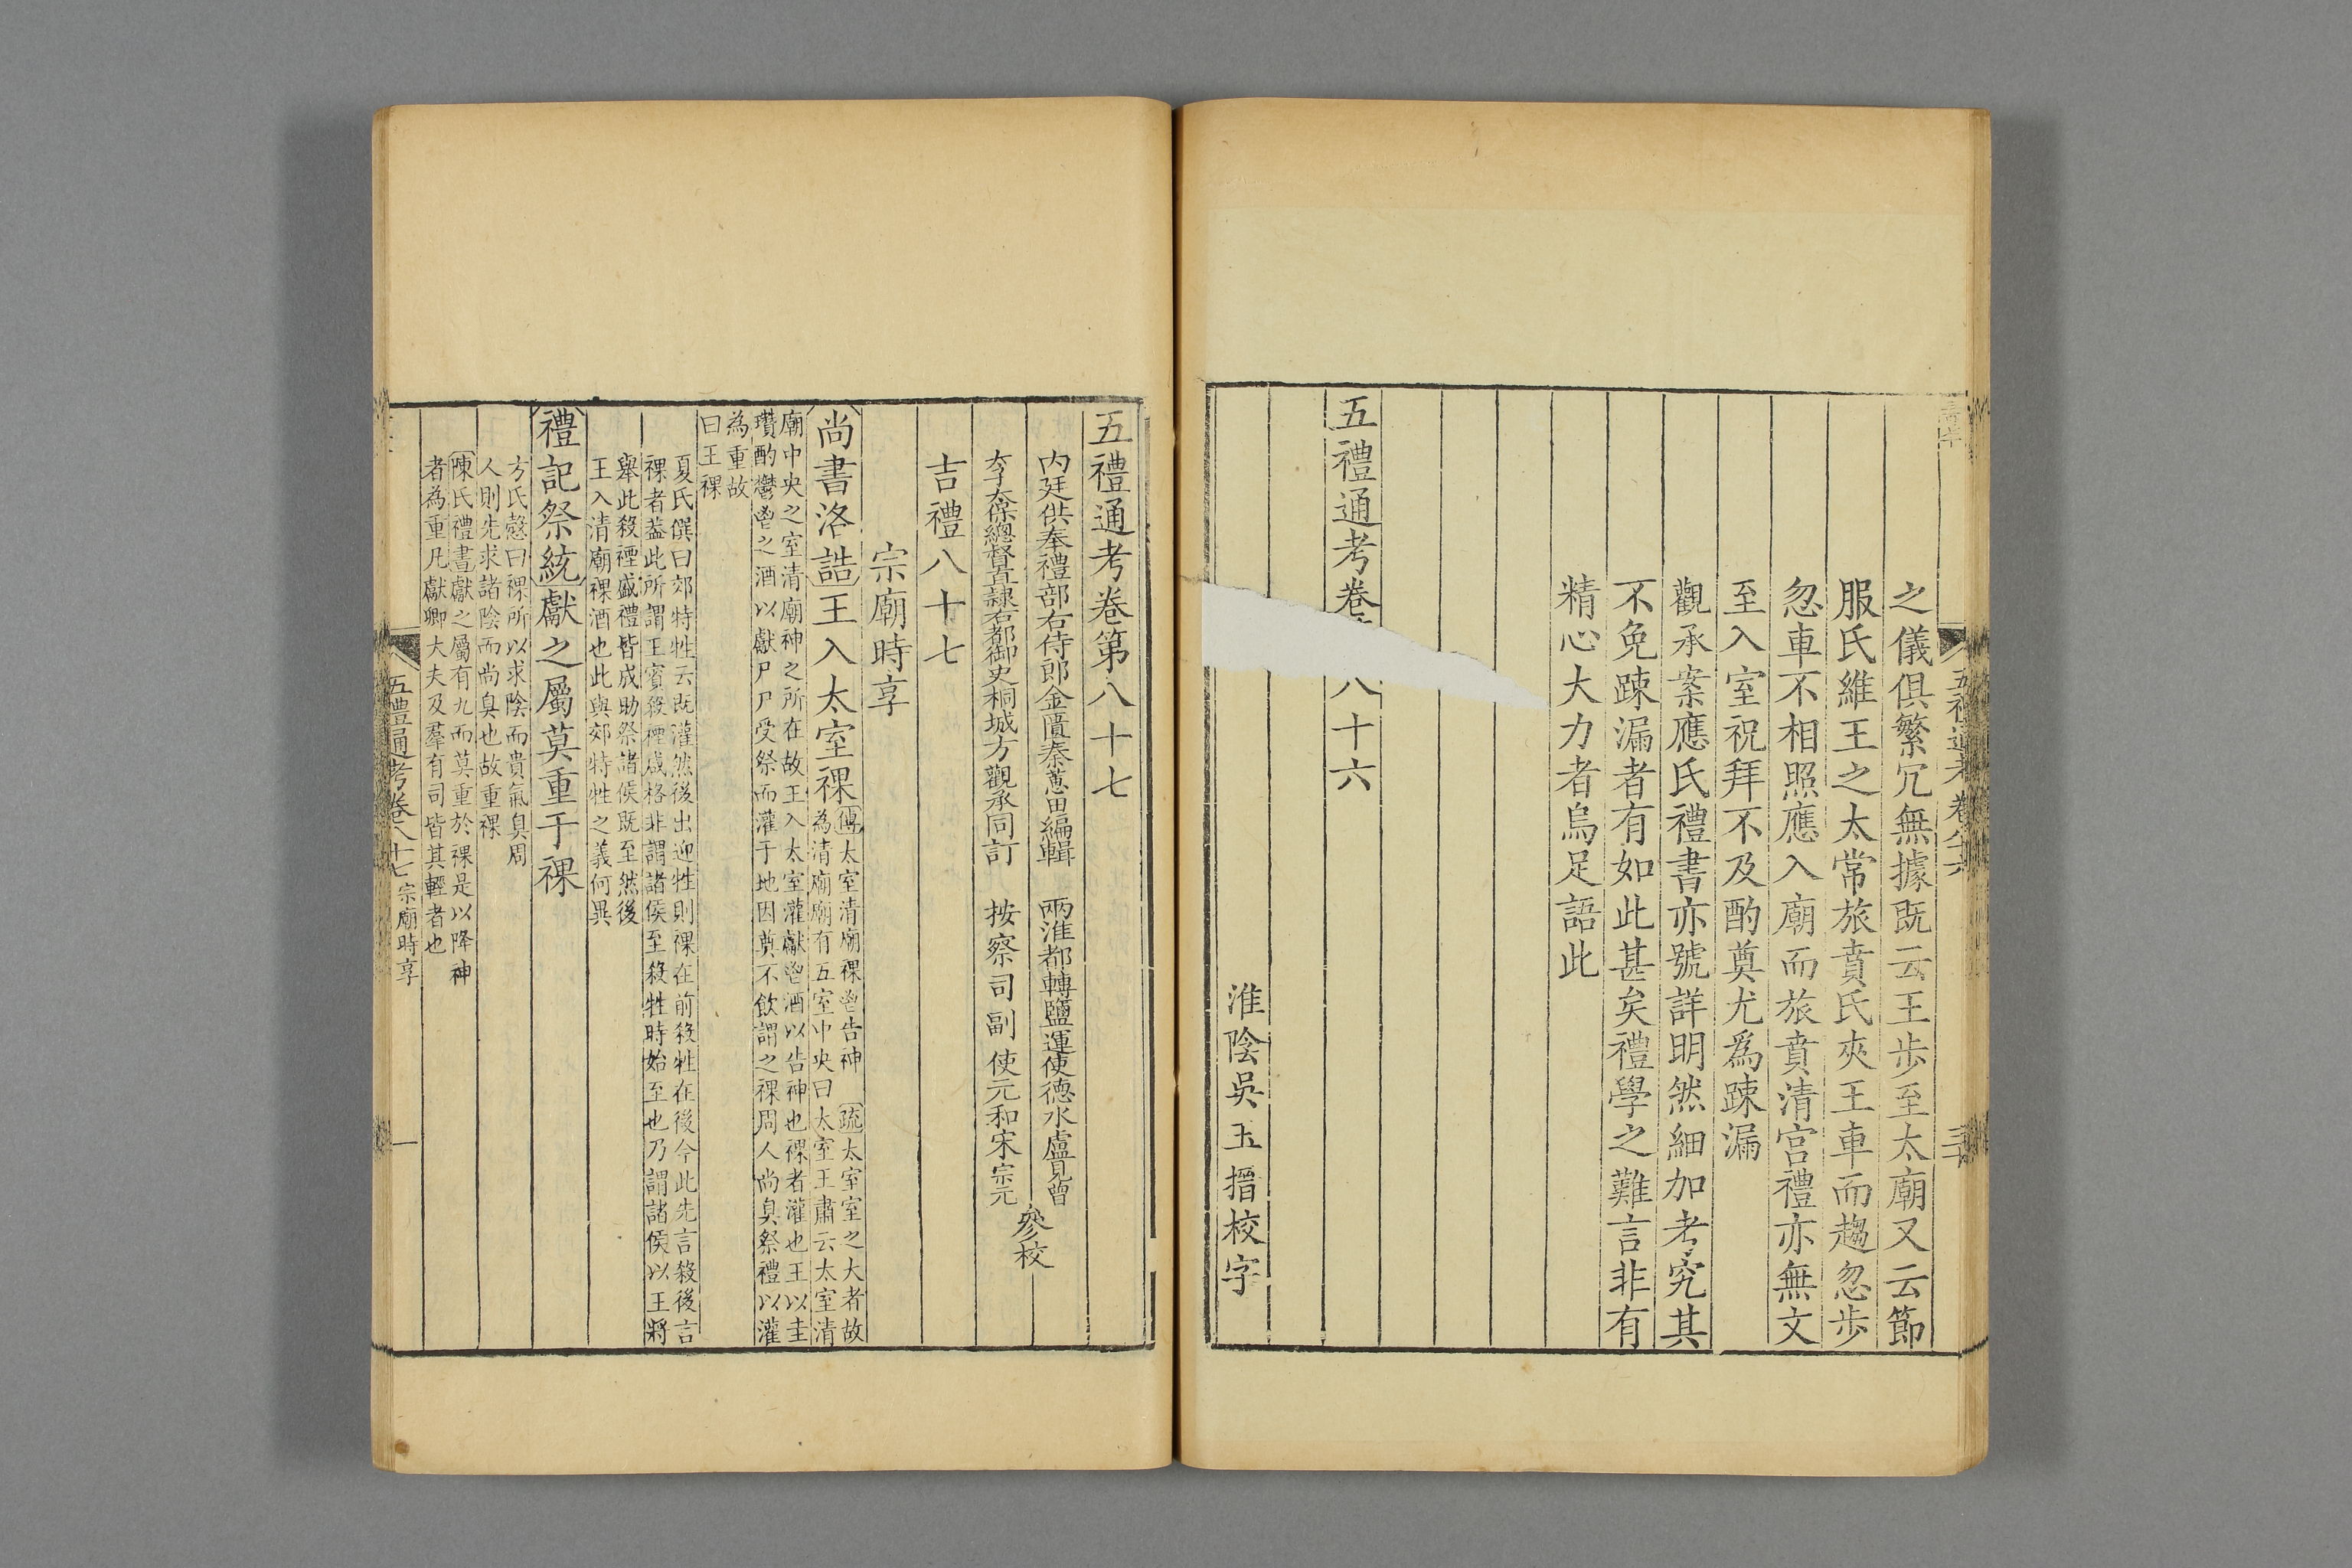 之儀俱繁冗無據既云王步至太廟又云節
服氏維王之太常旅賁氏夾王車而趨忽步
忽車不相照應入廟而旅賁清宮禮亦無文
至入室祝拜不及酌奠尤爲踈漏
觀承案應氏禮書亦號詳明然細加考究其
不免踈漏者有如此甚矣禮學之難言非有
精心大力者烏足語此
五禮通考卷八十六
淮陰吳玉搢校字
五禮通考卷第八十七
内廷供奉禮部右侍郎金匱秦蕙田編輯 兩淮都轉鹽運使德水盧見曾
太子太保總督直隸右都御史桐城方觀承同訂 按察司副使元和宋宗元
參校
吉禮八十七
宗廟時享
尚書洛誥王入太室祼
傳太室清廟祼鬯告神 疏太室室之大者故
爲清廟廟有五室中央曰太室王肅云太室清
廟中央之室清廟神之所在故王入太室灌獻鬯酒以告神也祼者灌也王以圭
瓚酌鬱鬯之酒以獻尸尸受祭而灌于地因奠不飲謂之祼周人尚臭祭禮以灌
為重故
曰王祼
夏氏僎曰郊特牲云既灌然後出迎牲則祼在前殺牲在後今此先言殺後言
祼者蓋此所謂王賓殺禋咸格非謂諸侯至殺牲時始至也乃謂諸侯以王將
舉此殺禋盛禮皆成助祭諸侯既至然後
王入清廟祼酒也此與郊特牲之義何異
禮記祭統獻之屬莫重于祼
方氏慤曰祼所以求陰而貴氣臭周
人則先求諸陰而尚臭也故重祼
陳氏禮書獻之屬有九而莫重於祼是以降神
者為重凡獻卿大夫及羣有司皆其輕者也
五禮通考卷八十七 宗廟時享
一